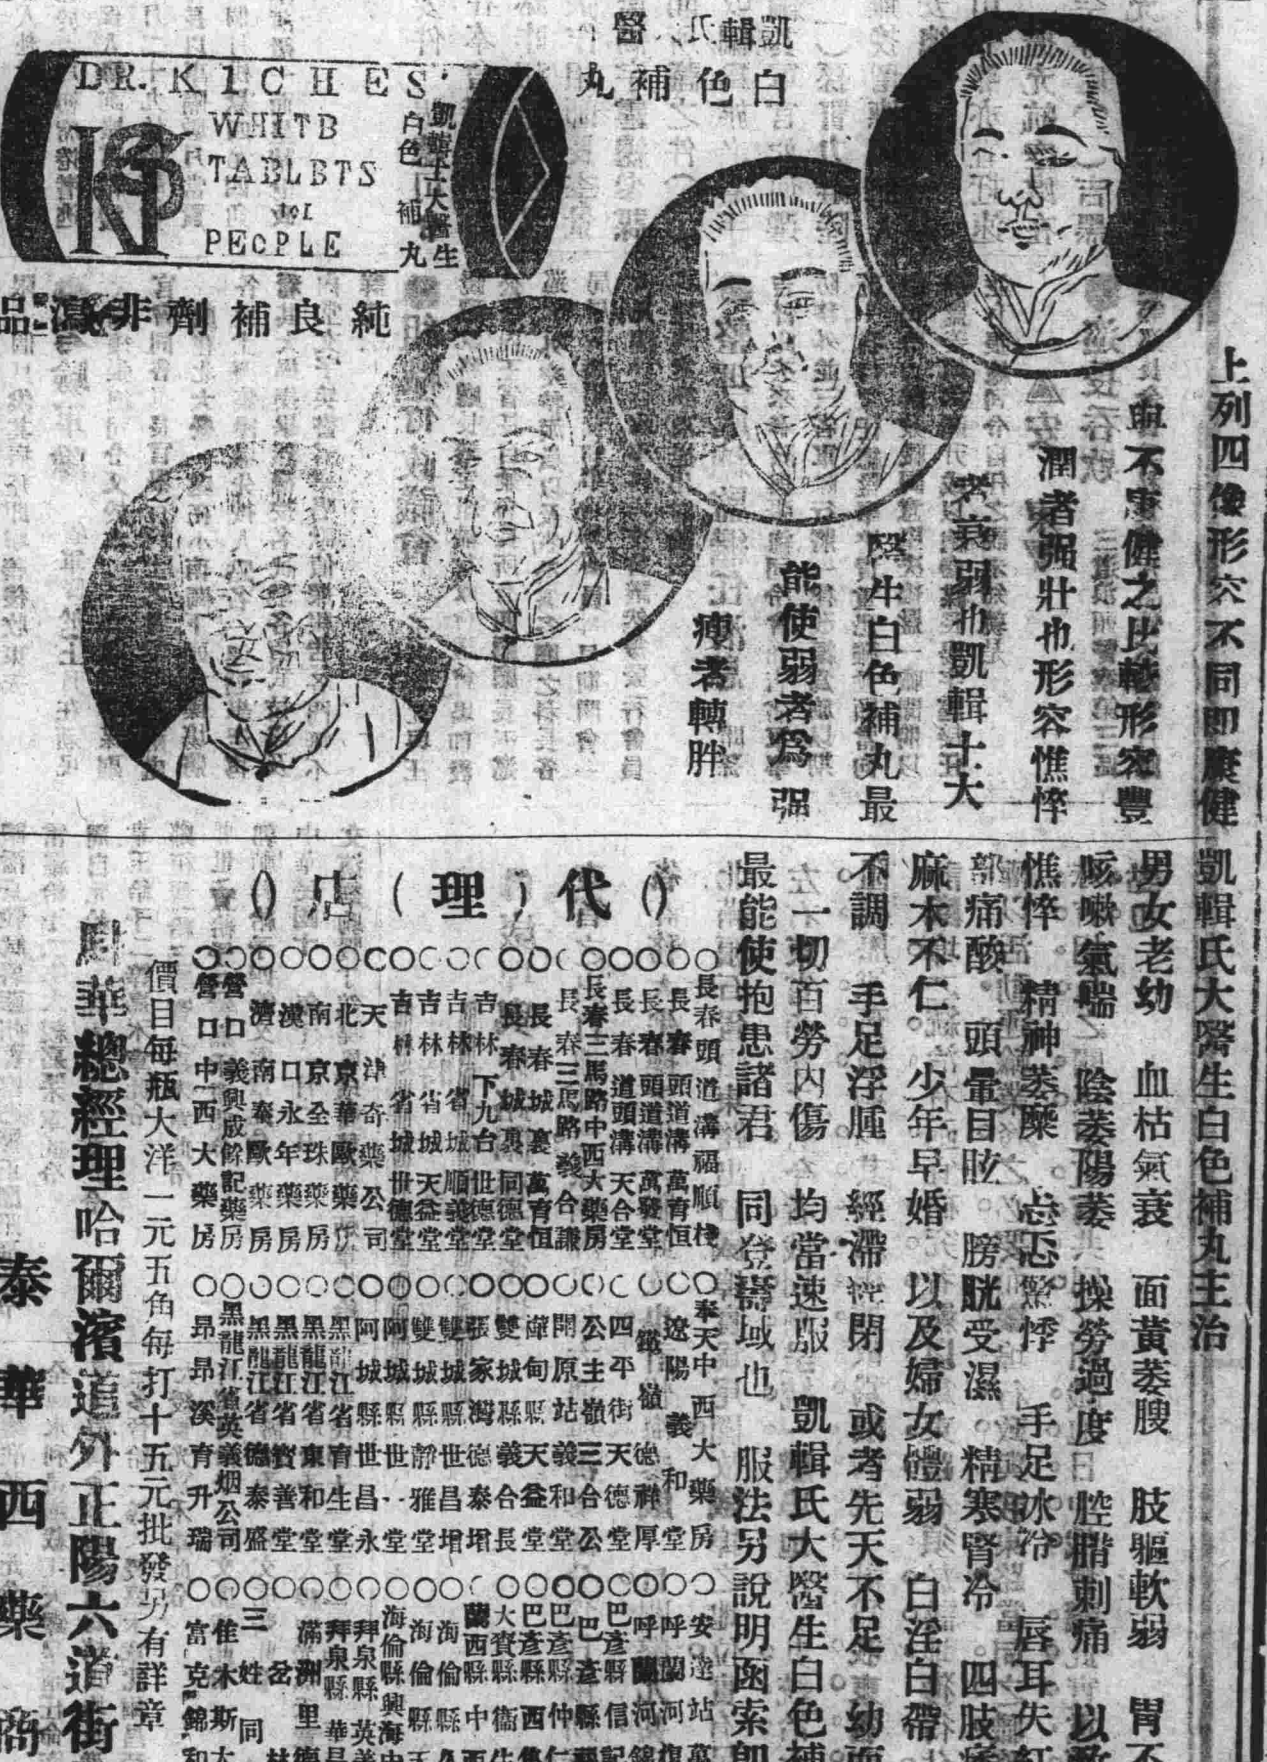 凱輯氏醫
白色補丸
DR. KICHES'
WHITB
TABLBTS
for
PEOPLE
凱輯士大醫生
白色補丸
純良補劑非瀉品
上列四像形容不同即康健
與不康健之比較形容豐
潤者强壯也形容憔悴
者衰弱也凱輯士大
醫生白色補丸最
能使弱者為强
瘦者轉胖
凱輯氏大醫生白色補丸主治
男女老幼 血枯氣衰 面黃萎瘦 肢軀軟弱 胃不
咳嗽氣喘 陰萎陽萎 操勞過度 腔腊刺痛 以及
憔悴 精神萎糜 忐忑驚悸 手足冰冷 唇耳失紅
部痛酸。頭暈目眩 膀胱受濕。精寒腎冷。四肢
麻木不仁。少年早婚 以及婦女體弱 白淫白帶
不調 手足浮腫 經滯 閉 或者先天不足 幼而
一切百勞內傷 均當速服 凱輯氏大醫生白色補
最能使抱患諸君 同登壽域也 服法另說明函索即
代理店
○長春頭道溝福順棧
○長春頭道溝萬育恒
○長春頭道溝萬發堂
○長春道頭溝天合堂
○長春三馬路中西大藥房
○長春三馬路義合謙
○長春城裏萬育恒
○長春城裏同德堂
○吉林下九台世德堂
○吉林省城順義堂
○吉林省城天益堂
○吉林省城世德堂
○天津奇藥公司
○北京華歐藥房
○南京全珠藥房
○漢口永年藥房
○濟南泰歐藥房
○營口義興成餘記藥房
○營口中西大藥房
○奉天中西大藥房
○遼陽義和堂
○鐵嶺德祥厚
○四平街天德堂
○公主嶺三合公
○開原站義和堂
○樺甸縣天益堂
○雙城縣義合長
○張家灣德泰增
○雙城縣世昌增
○雙城縣靜雅堂
○阿城縣世一堂
○阿城縣世昌永
○黑龍江省育生堂
○黑龍江省東和堂
○黑龍江省寶善堂
○黑龍江省德泰盛
○黑龍江省英義烟公司
○昂昂溪育升瑞
○安達站萬
○呼蘭河復
○呼蘭河錦
○巴彥縣信記
○巴彥縣
○巴彥縣仲仁
○巴彥縣西集
○大賚縣衛生
○蘭西縣中西
○海倫縣
○海倫縣
○海倫縣興海中
○拜泉縣英義
○拜泉縣華昌
○滿洲里德
○三岔
○三姓同
○佳木斯大
○富克錦和
價目每瓶大洋一元五角每打十五元批發另有詳章
總經理哈爾濱道外正陽六道街
泰華西藥